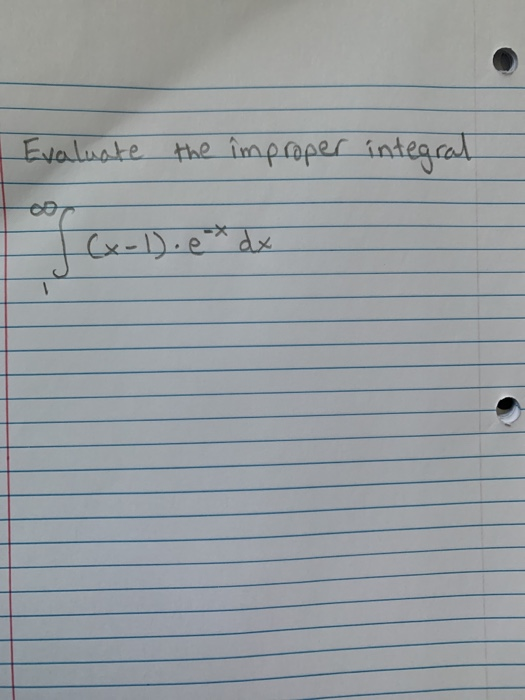 Evaluate the improper integral
∞∫₁ (x-1)·e⁻ˣ dx